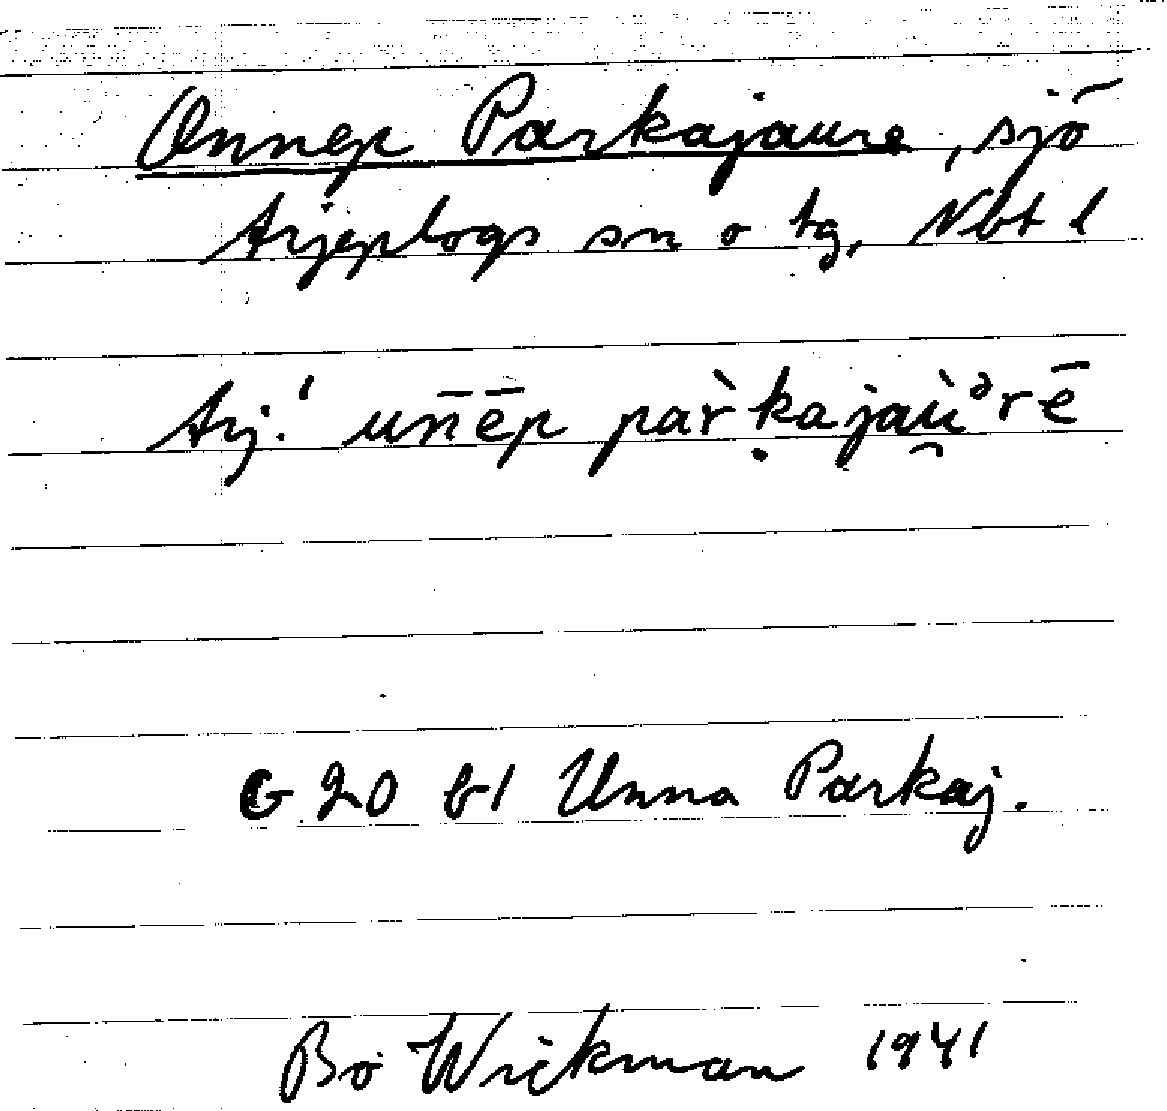 Onnep Parkajaure, sjö
Arjeplogs sn o tg, Nbt l
Arj.! un̄ēp par̀ḳajaù̯ᵊrē
G 20 bl Unna Parkaj.
Bo Wickman 1941